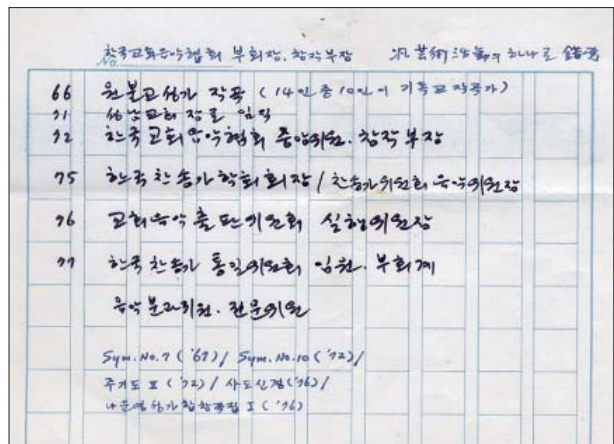 한국교회음악협회 부회장, 창작부장 汎 芸術活動의 하나로
No.
66 원불교성가 작곡 (14인 중 10인이 기독교 작곡가)
71 성남교회 장로 임직
72 한국교회음악협회 중앙위원. 창작부장
75 한국찬송가학회 회장 / 찬송가위원회 음악위원장
76 교회음악출판위원회 실행위원장
77 한국찬송가 통일위원회 임원. 부회계
음악분과위원. 전문위원
Sym. No. 7 ('67) / Sym. No. 10 ('72) /
주기도 II ('72) / 사도신경 ('76) /
나운영 성가합창곡집 I ('76)